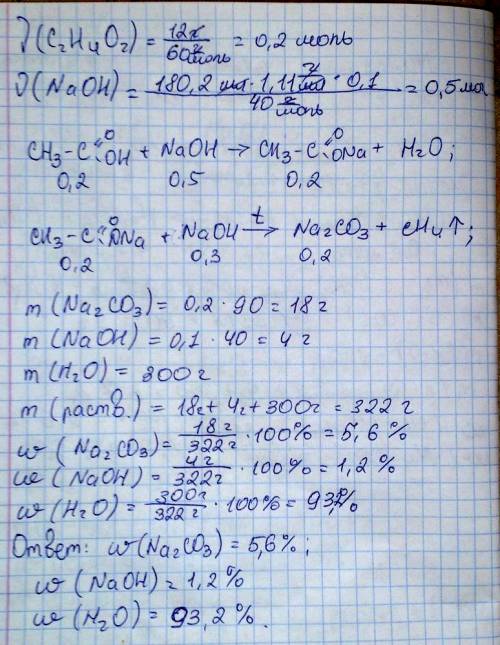 ν(C₂H₄O₂) = 12г / 60 г/моль = 0,2 моль
ν(NaOH) = 180,2 мл · 1,11 г/мл · 0,1 / 40 г/моль = 0,5 мол
CH₃-C(=O)OH + NaOH → CH₃-C(=O)ONa + H₂O;
0,2 0,5 0,2
CH₃-C(=O)ONa + NaOH →t Na₂CO₃ + CH₄↑;
0,2 0,3 0,2
m(Na₂CO₃) = 0,2 · 90 = 18 г
m(NaOH) = 0,1 · 40 = 4 г
m(H₂O) = 300 г
m(раств.) = 18г + 4г + 300г = 322 г
ω(Na₂CO₃) = 18г / 322г · 100% = 5,6 %
ω(NaOH) = 4г / 322г · 100% = 1,2 %
ω(H₂O) = 300г / 322г · 100% = 93,2%
Ответ: ω(Na₂CO₃) = 5,6%;
ω(NaOH) = 1,2 %
ω(H₂O) = 93,2 %.